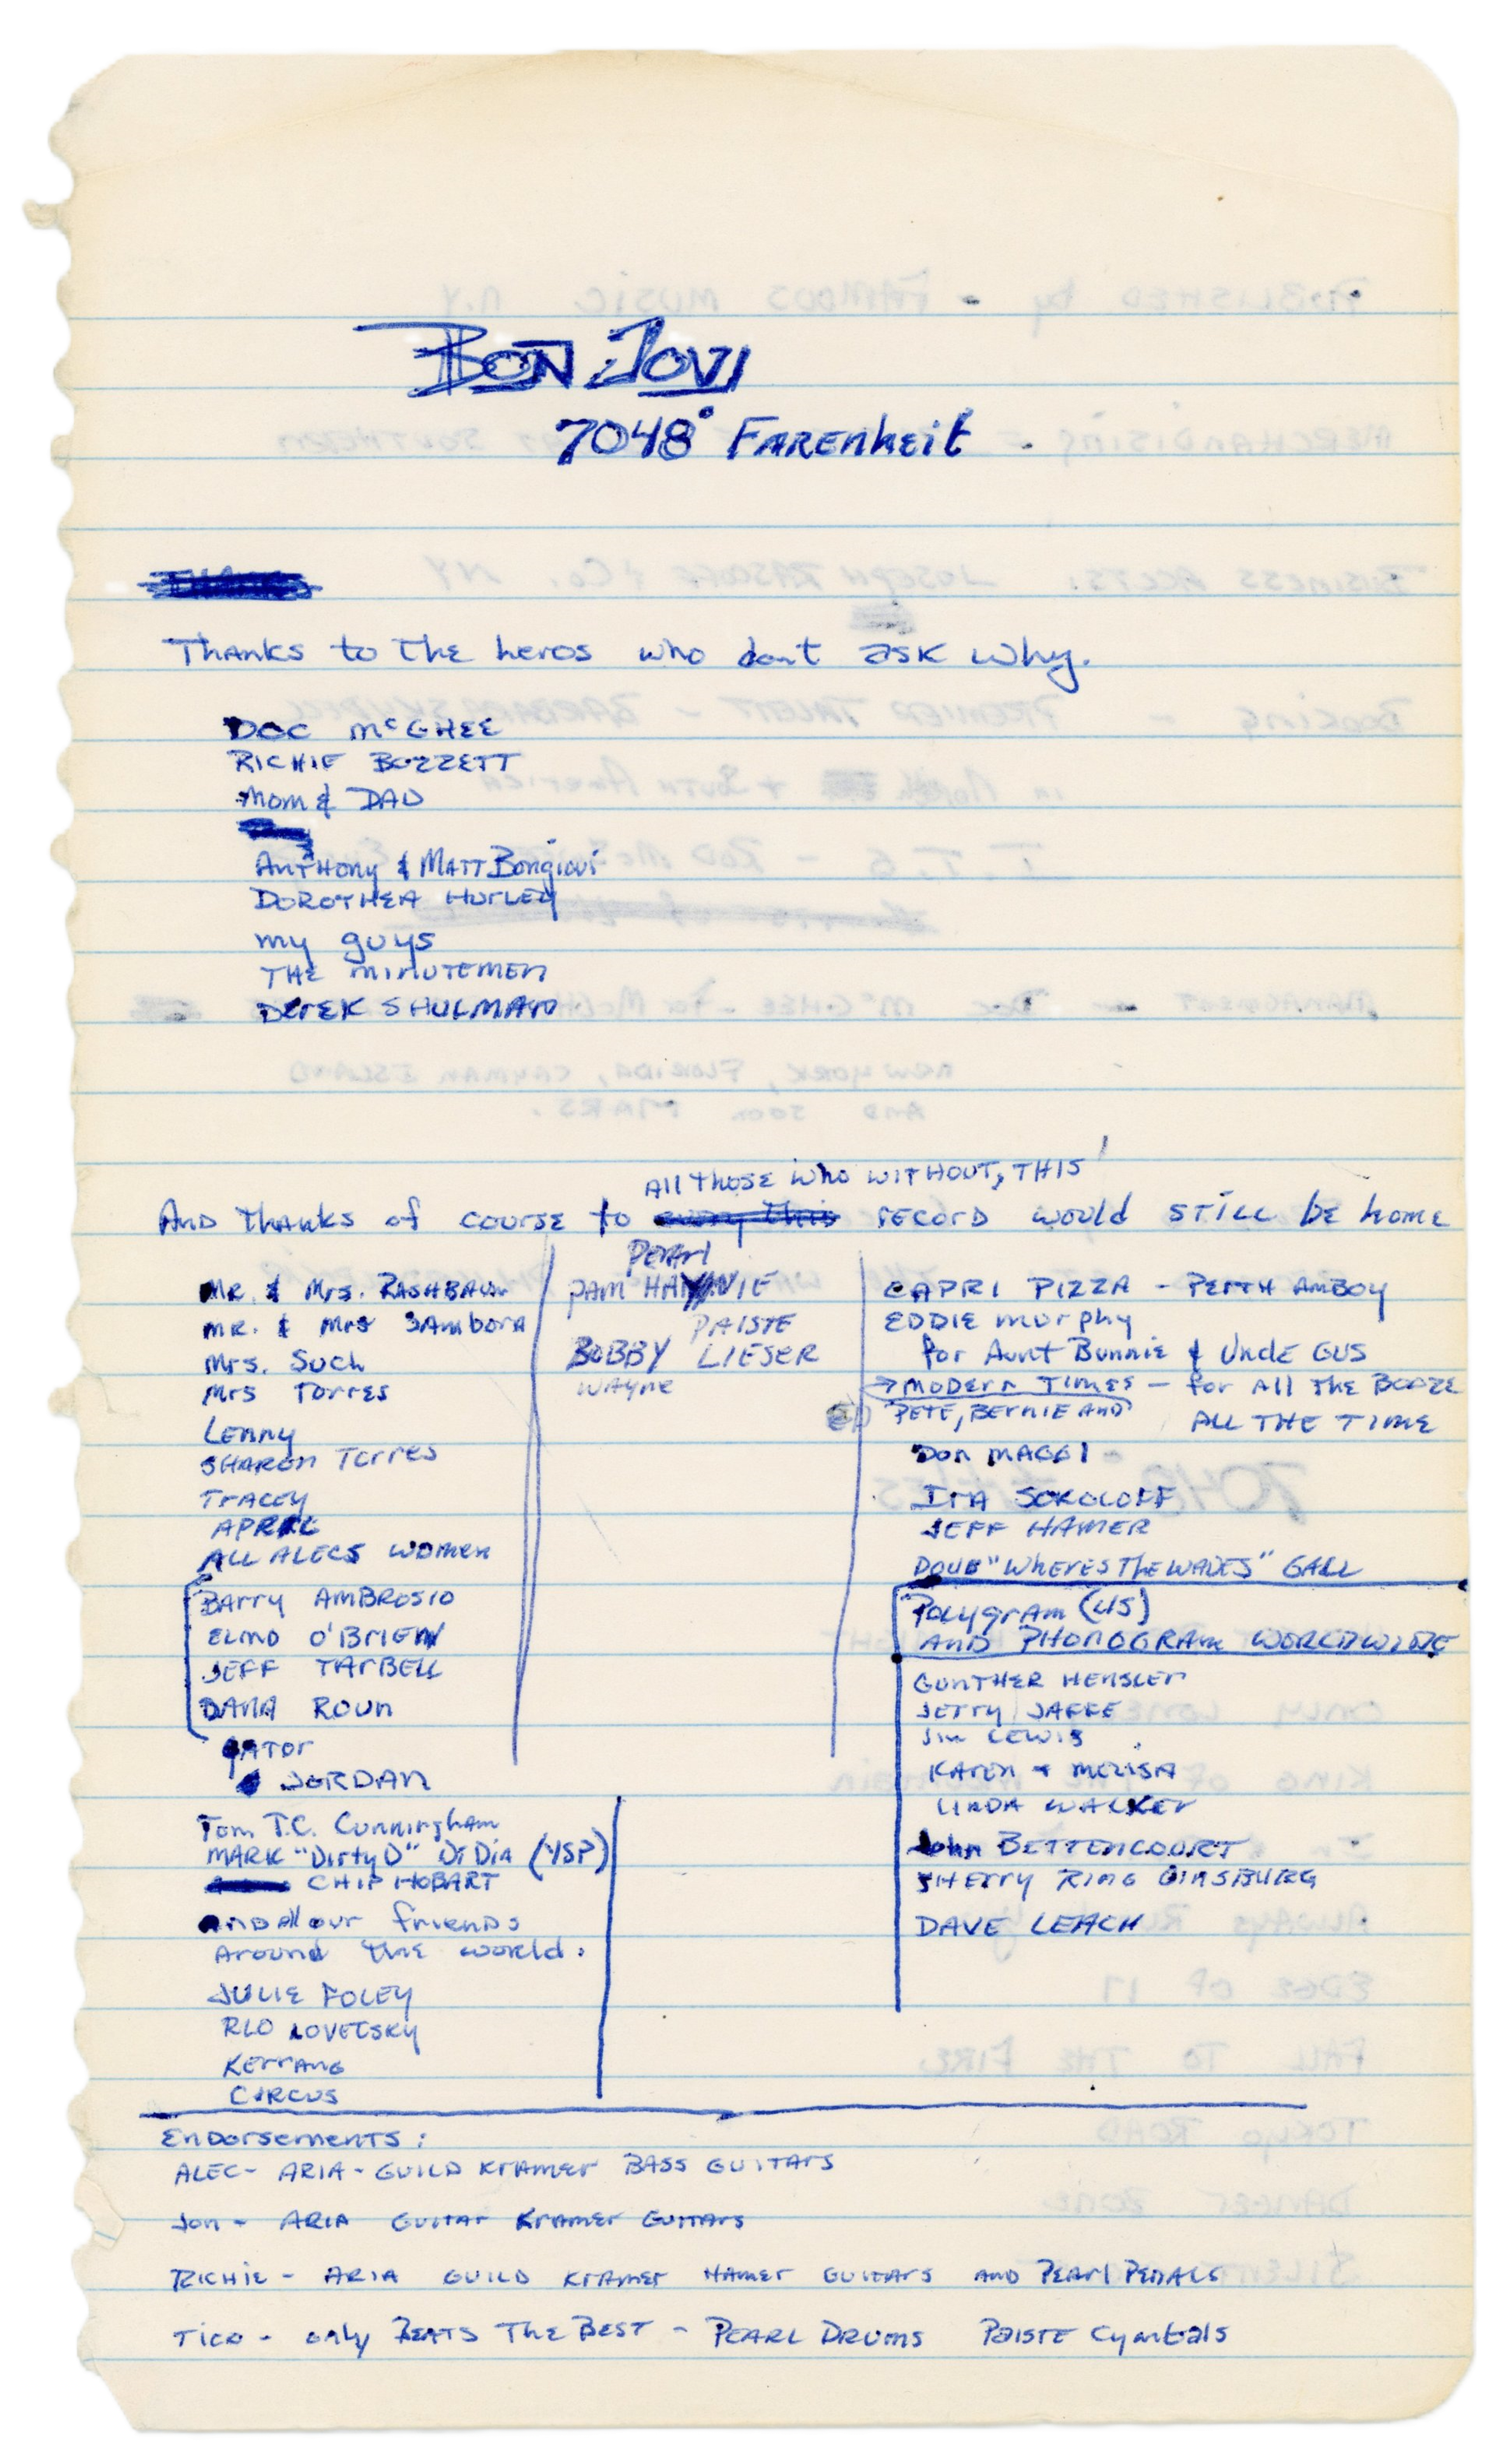 BON JOVI
7048° FARENheit
Thanks to the heros who don't ask why.
DOC McGHEE
RICHIE BOZZETT
Mom & DAD
Anthony & Matt Bongiovi
DOROTHEA HURLEY
my guys
THE MINUTEMEN
DEREK SHULMAN
All those who WITHOUT, THIS
And thanks of course to every this record would still be home
Mr. & Mrs. RASHBAUM
MR. & Mrs SAmbora
Mrs. Such
Mrs Torres
Lenny
SHARON Torres
TRACEY
APRIL
ALL ALECS women
Barry AMBROSIO
ELMO O'BRIEN
JEFF TARBELL
DANA ROUN
GATOR
JORDAN
Tom T.C. Cunningham
MARK "Dirty D" DiDia (YSP)
CHIP HOBART
and all our friends
around the world.
JULIE FOLEY
RLO LOVETSKY
KERRANG
CIRCUS
Pearl
PAM
PAISTE
BOBBY LIESER
WAYNE
CAPRI PIZZA - PERTH AMBOY
EDDIE murphy
for Aunt Bunnie & Uncle GUS
→ MODERN TIMES - for All The BOOZE
PETE, BERNIE AND ALL THE TIME
DON MAGGI
IRA SOKOLOFF
JEFF HAMER
DOUG "WHERES THE WAVES" GALL
Polygram (US)
AND PHONOGRAM WORLDWIDE
GUNTHER HENSLER
JERRY JAFFE
Jim LEWIS
KAREN + MELISA
LINDA WALKER
John BETTENCOURT
SHERRY RING GINSBURG
DAVE LEACH
Endorsements:
ALEC - ARIA - GUILD KRAMER BASS GUITARS
Jon - ARIA GUITAR KRAMER GUITARS
RICHIE - ARIA GUILD KRAMER HAMER GUITARS AND PEARL PEDALS
TICO - only BEATS THE BEST - PEARL DRUMS PAISTE Cymbals